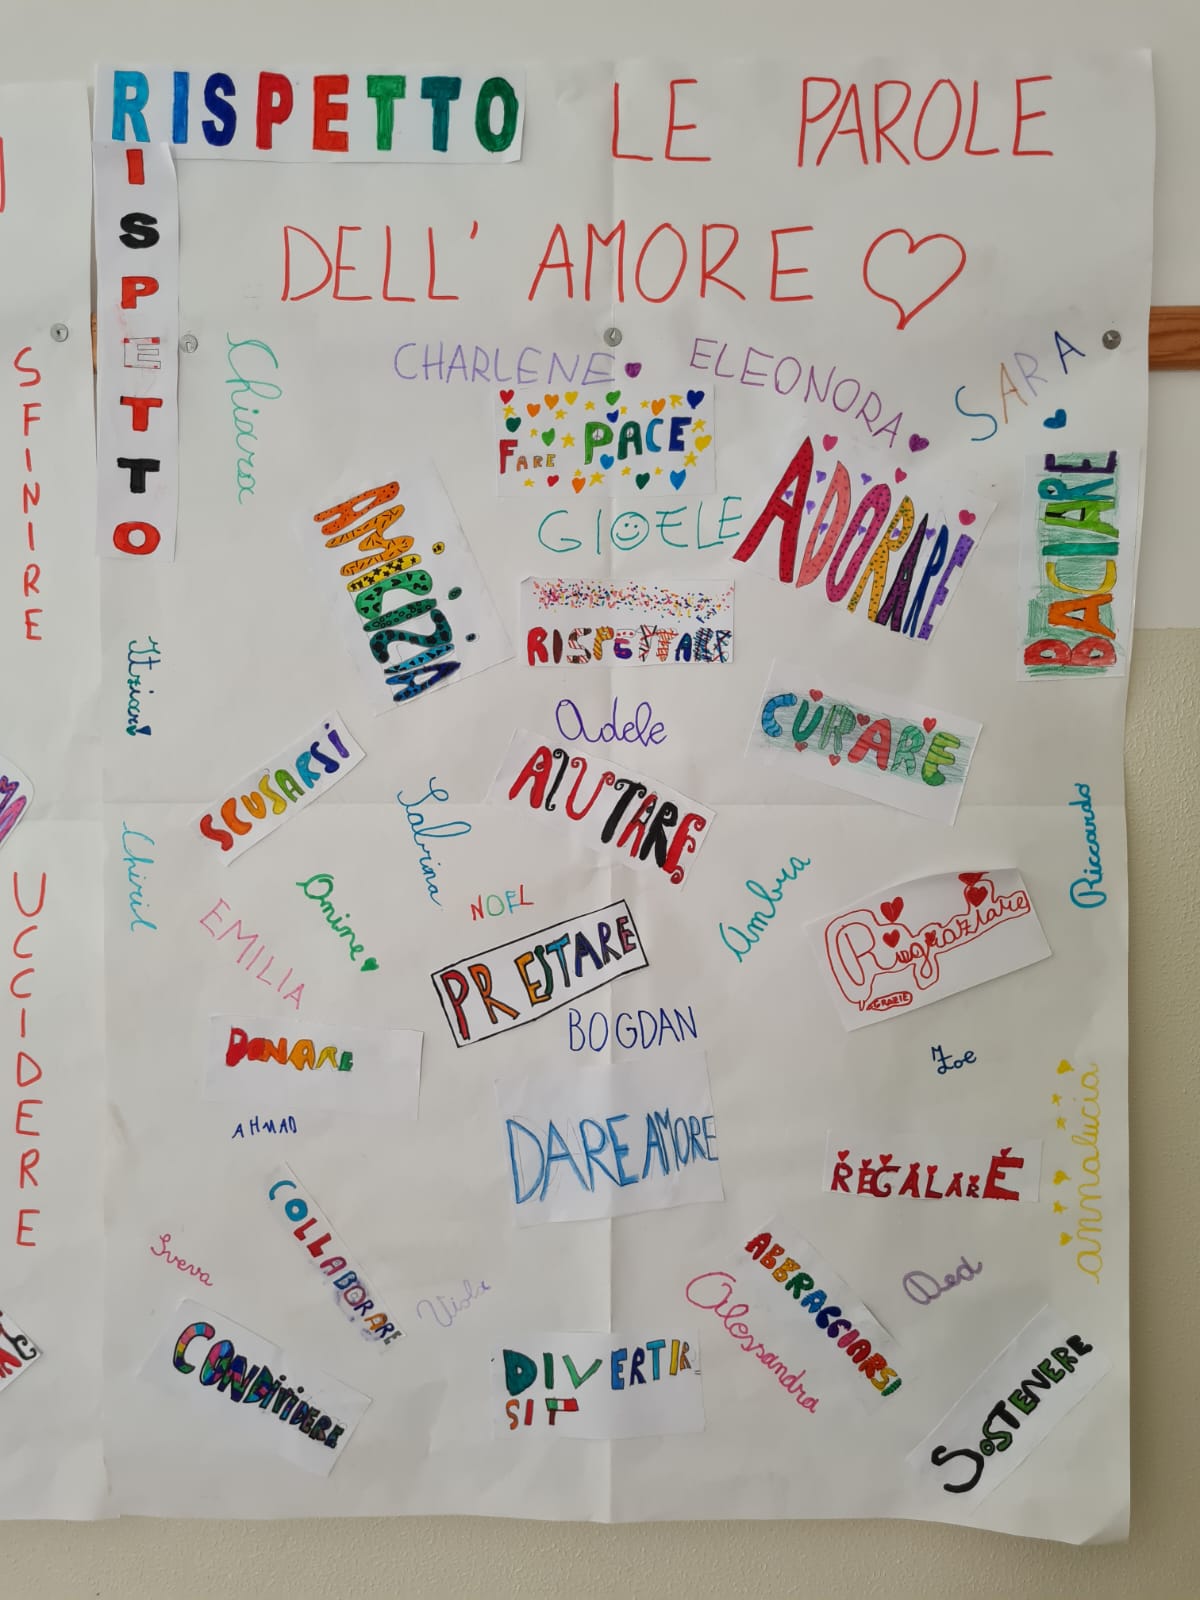 RISPETTO
LE PAROLE
DELL' AMORE
RISPETTO
SFINIRE
UCCIDERE
Chiara
CHARLENE
ELEONORA
SARA
FARE PACE
AMICIZIA
GIOELE
ADORARE
BACIARE
RISPETTARE
Itziar
Adele
CURARE
SCUSARSI
Sabrina
AIUTARE
Riccardo
Chiril
EMILIA
Amine
NOEL
PRESTARE
Ambra
Ringraziare
GRAZIE
BOGDAN
DONARE
Zoe
AHMAD
DARE AMORE
annalucia
REGALARE
COLLABORARE
Sveva
Viola
Alessandra
ABBRACCIARSI
CONDIVIDERE
DIVERTIR
SI
SOSTENERE